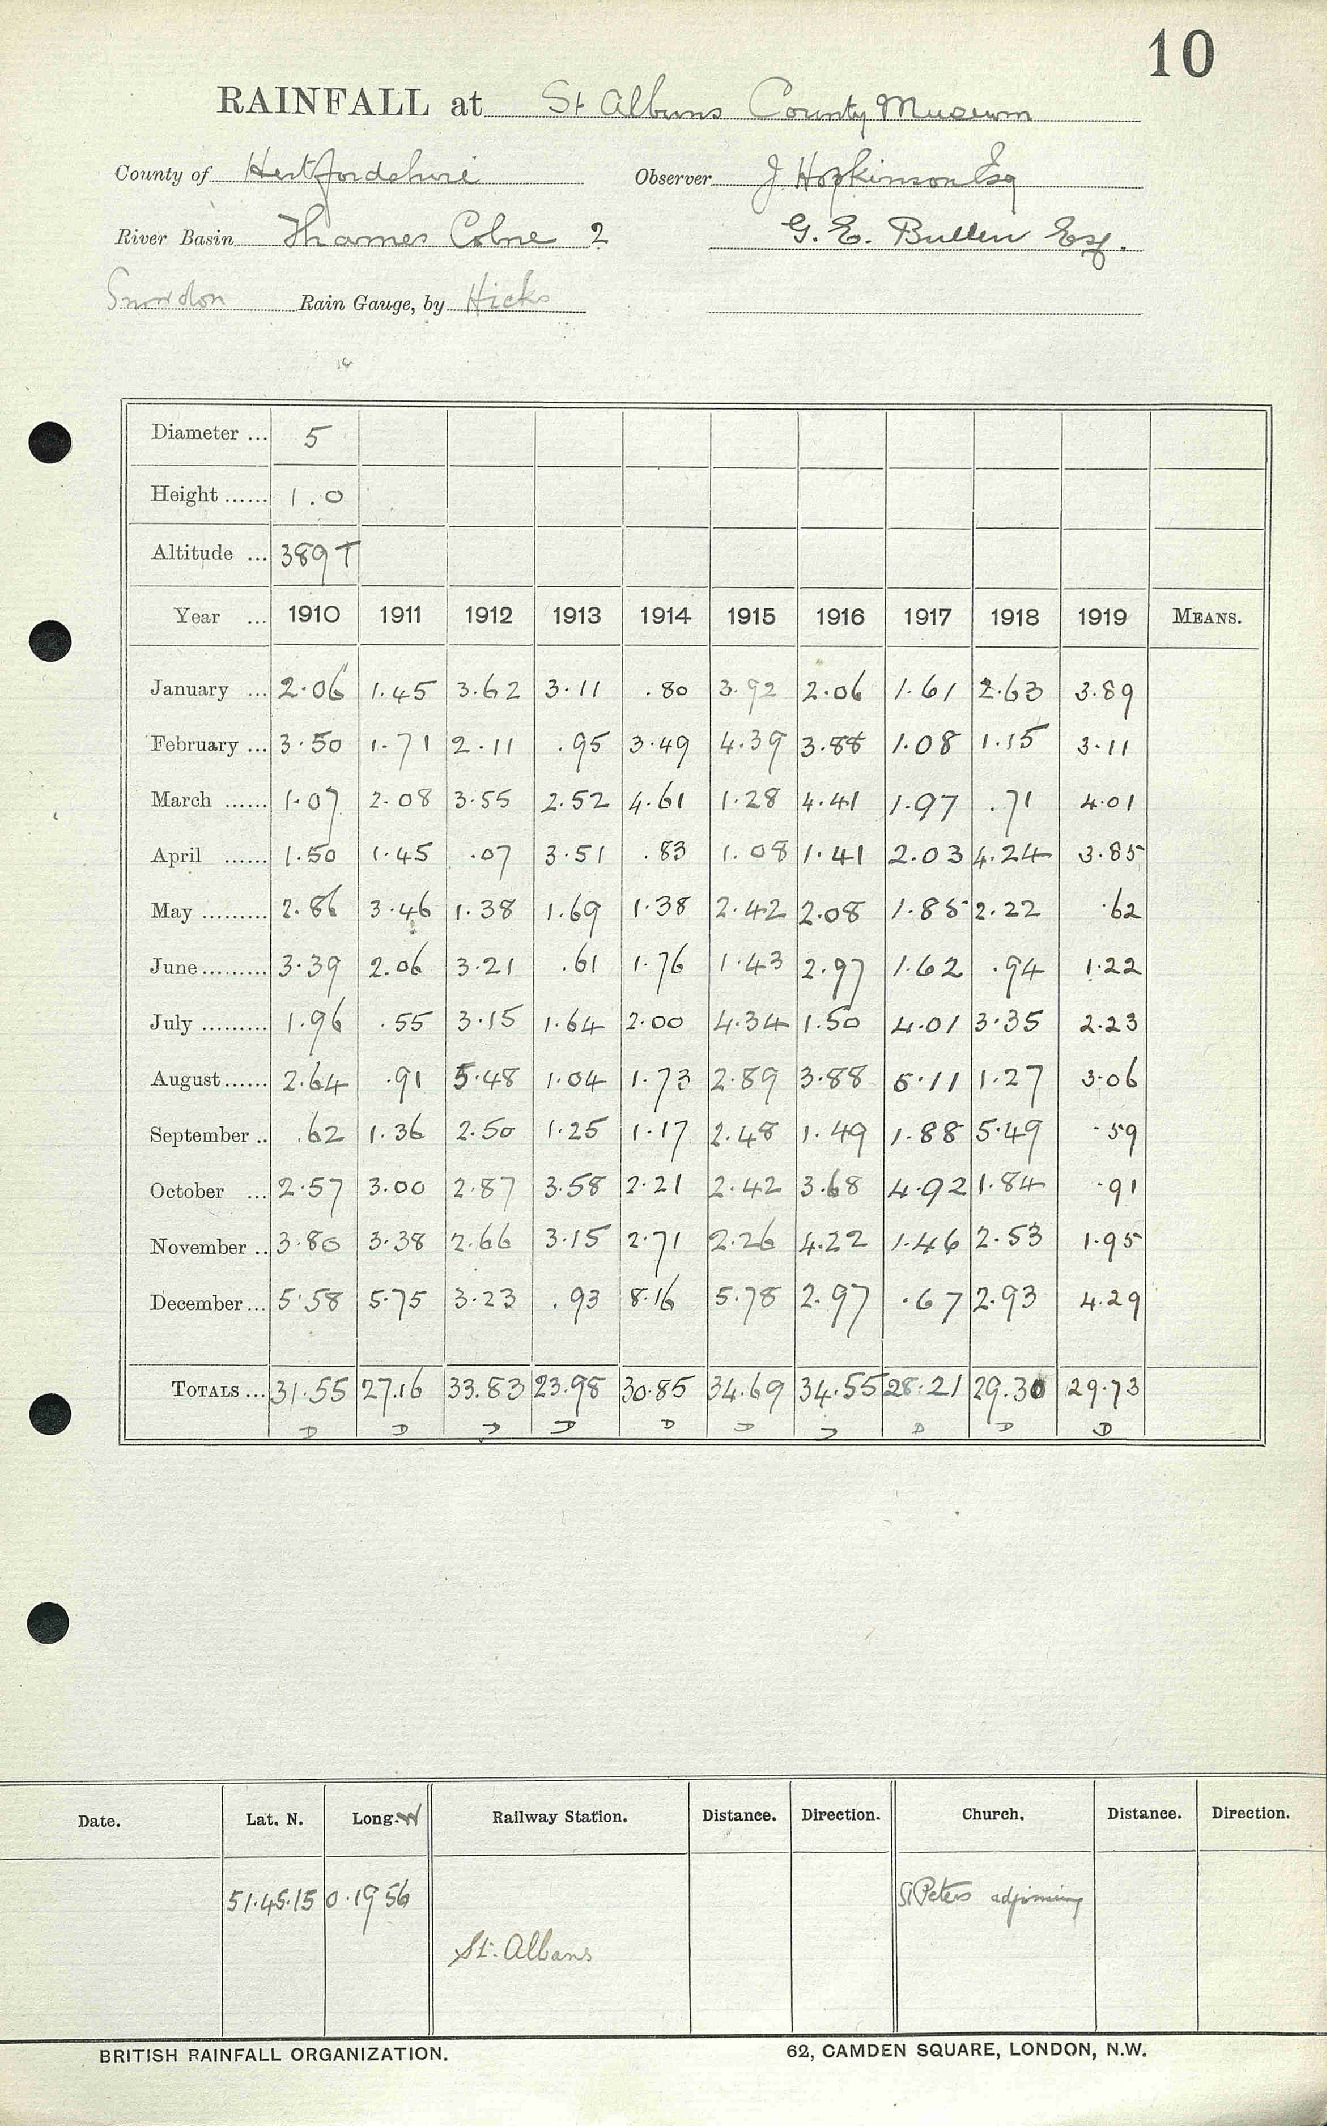 10
RAINFALL at St Albans County Museum
County of Hertfordshire Observer J Hopkinson Esq
River Basin Thames Colne 2 G. E. Bullen Esq.
Snowdon Rain Gauge, by Hicks
Diameter ... 5
Height ...... 1.0
Altitude ... 389 T
Year ... 1910 1911 1912 1913 1914 1915 1916 1917 1918 1919 MEANS.
January ... 2.06 1.45 3.62 3.11 .80 3.92 2.06 1.61 2.63 3.89
February ... 3.50 1.71 2.11 .95 3.49 4.39 3.88 1.08 1.15 3.11
March ...... 1.07 2.08 3.55 2.52 4.61 1.28 4.41 1.97 .71 4.01
April ...... 1.50 1.45 .07 3.51 .83 1.08 1.41 2.03 4.24 3.85
May ......... 2.86 3.46 1.38 1.69 1.38 2.42 2.08 1.85 2.22 .62
June ......... 3.39 2.06 3.21 .61 1.76 1.43 2.97 1.62 .94 1.22
July ......... 1.96 .55 3.15 1.64 2.00 4.34 1.50 4.01 3.35 2.23
August ...... 2.64 .91 5.48 1.04 1.73 2.89 3.88 5.11 1.27 3.06
September .. .62 1.36 2.50 1.25 1.17 2.48 1.49 1.88 5.49 .59
October ... 2.57 3.00 2.87 3.58 2.21 2.42 3.68 4.92 1.84 .91
November .. 3.80 3.38 2.66 3.15 2.71 2.26 4.22 1.46 2.53 1.95
December ... 5.58 5.75 3.23 .93 8.16 5.78 2.97 .67 2.93 4.29
TOTALS ... 31.55 27.16 33.83 23.98 30.85 34.69 34.55 28.21 29.30 29.73
D D D D D D D D D D
Date. Lat. N. Long. W Railway Station. Distance. Direction. Church. Distance. Direction.
51.45.15 0.19 56 St Peters adjoining
St. Albans
BRITISH RAINFALL ORGANIZATION. 62, CAMDEN SQUARE, LONDON, N.W.